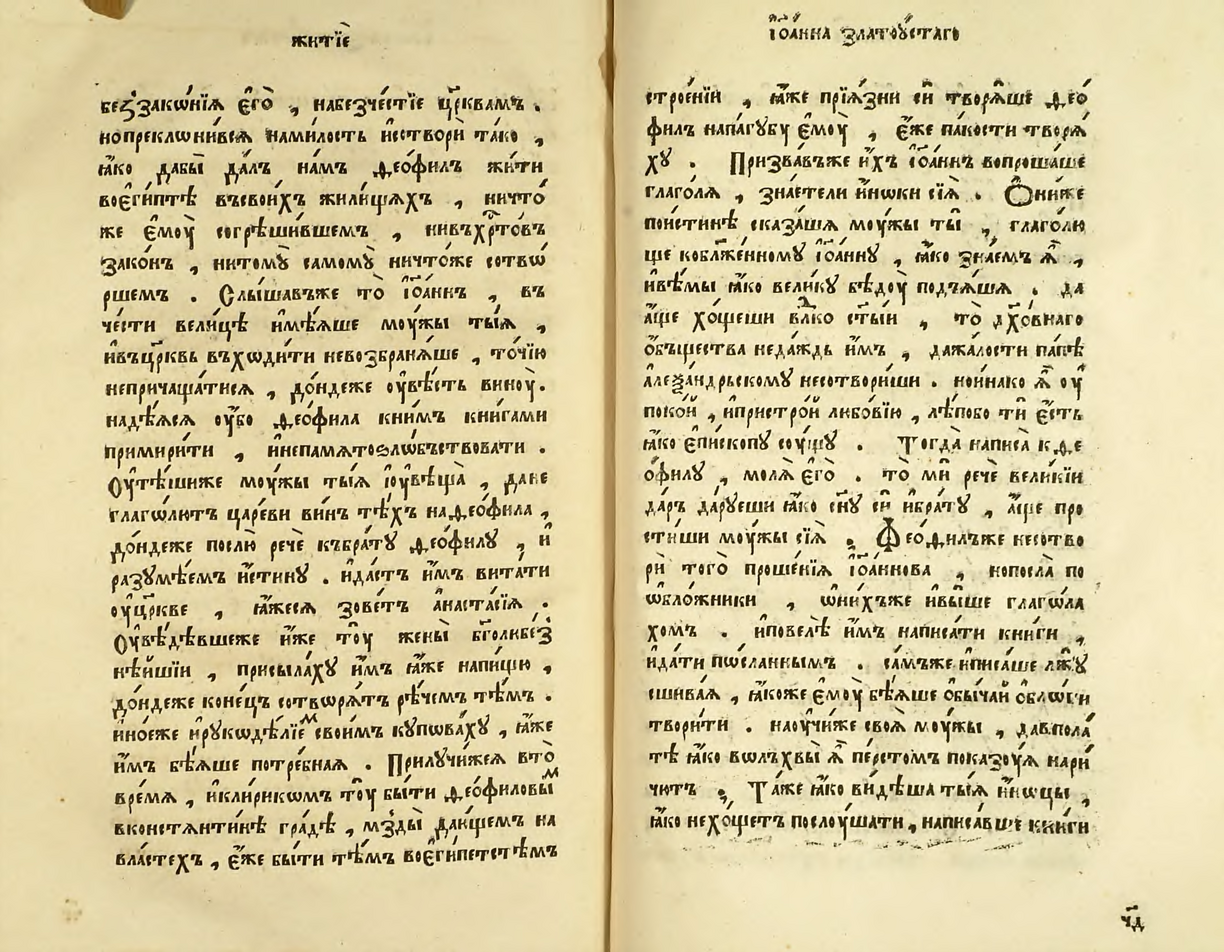 житїѐ
беꙁ̾зако́нїѧ є҆гѡ̀ , набезче́стїе цр҃квамъ .
нопреклѡни́всѧ нами́лость и҆сотворѝ та́ко ,
ꙗ҆́ко дабы̀ да́лъ на́мъ ѳео́филъ жи́ти
воє҆ги́птѣ въсвои́хъ жили́щѧхъ , ничто́
же є҆моу̀ согрѣши́вшемъ , нивъхрⷭ҇то́въ
зако́нъ , нитомꙋ̀ самомꙋ̀ ничто́же сотвѡ́
ршемъ . Слы́шавъже то̀ і҆ѡа́ннъ , въ
че́сти вели́цѣ и҆мѣ́ѧше моу́жы ты́ѧ ,
и҆въцр҃квь въхѡди́ти невозбранѧ́ше , то́чїю
непричаща́тисѧ , до́ндеже оу҆вѣ́сть виноу̀ .
надѣ́ѧсѧ оу҆̀бо ѳео́фила кни́мъ кни́гами
примири́ти , и҆непамѧтоѕло́бьствовати .
Оу҆тѣ́шиже моу́жы ты́ѧ і҆оувѣща̀ , да́не
глаго́лютъ царе́ви ви́нъ тѣ́хъ наѳео́фила ,
до́ндеже послю̀ речѐ къбра́тꙋ ѳео́филꙋ , и҆
разꙋмѣ́емъ и҆́стинꙋ . и҆да́стъ и҆̀мъ вита́ти
оу҆цр҃кве , ꙗ҆́жесѧ зове́тъ а҆настасі́ѧ .
Оу҆вѣ́дѣвшеже и҆̀же тоу̀ жены̀ бг҃олюбеꙁ̾
нѣ́йшїи , присыла́хꙋ и҆̀мъ ꙗ҆́же напи́щю ,
до́ндеже коне́цъ сотворѧ́тъ рѣ́чемъ тѣ́мъ .
и҆но́еже и҆рꙋкодѣ́лїеⷨ свои́мъ кꙋпова́хꙋ , ꙗ҆́же
и҆̀мъ бѣ́ѧше потре́бнаѧ . Прилꙋчи́жесѧ вто̀
вре́мѧ , и҆кли́рикѡмъ тоу̀ бы́ти ѳео́филовыⷨ
вконстѧнти́нѣ гра́дѣ , мзды̀ даю́щемъ на
вла́стехъ , є҆́же бы́ти тѣ́мъ воє҆ги́петстѣмъ
і҆ѡа́нна златоꙋ́стаго
строе́нїи , ꙗ҆́же прїѧ́зни сѝ творѧ́ше ѳео́
филъ напа́гꙋбꙋ є҆моу̀ , є҆́же па́кости творѧ́
хꙋ . Призва́въже и҆́хъ і҆ѡа́ннъ вопроша́ше
глаго́лѧ , зна́етели и҆́ноки сїѧ̀ . Ѻ҆ни́же
пои́стинѣ сказа́шѧ моу́жы ты̀ , глаго́лю
ще коблаже́нномꙋ і҆ѡа́ннꙋ , ꙗ҆́ко зна́емъ ѧ҆̀ ,
и҆вѣ́мы ꙗ҆́ко вели́кꙋ бѣдоу̀ подъѧ́шѧ . да
а҆́ще хо́щеши влⷣко ст҃ы́и , то̀ дх҃о́внаго
о҆́бъщества неда́ждь и҆̀мъ , дажа́лости па́пѣ
але́ѯандрьскомꙋ несотвори́ши . нои҆на́ко ѧ҆̀ оу҆
поко́й , и҆пристро́й любо́вїю , лѣ́побо тѝ є҆́сть
ꙗ҆́ко є҆пи́скопꙋ соу́щꙋ . Тогда̀ написа̀ кѳе
о́филꙋ , молѧ̀ є҆го̀ . то̀ ми̂ речѐ вели́кїи
да́ръ дарꙋ́еши ꙗ҆́ко сн҃ꙋ сѝ и҆бра́тꙋ , а҆́ще про
сти́ши моу́жы сїѧ̀ . Ѳео́филъже несотво
рѝ того̀ проше́нїѧ і҆ѡа́ннова , нопосла̀ по
ѡ҆бло́жники , ѡ҆ни́хъже и҆вы́ше глаго́ла
хомъ . и҆повелѣ̀ и҆̀мъ написа́ти кни́ги ,
и҆да́ти по́сланнымъ . са́мъже и҆писа́ше лжꙋ̀
сшива́ѧ , ꙗ҆́коже є҆моу̀ бѣ́ѧше о҆бы́чай облѡ́ги
твори́ти . наоучи́же своѧ̀ моу́жы , давпола́
тѣ ꙗ҆́ко во́лъхвы ѧ҆̀ пе́рстомъ показоу́ѧ нари
чю́тъ . Та́же ꙗ҆́ко ви́дѣша ты́ѧ и҆́ноцы ,
ꙗ҆́ко нехо́щетъ послоу́шати , написа́вше кни́ги
ч҃д